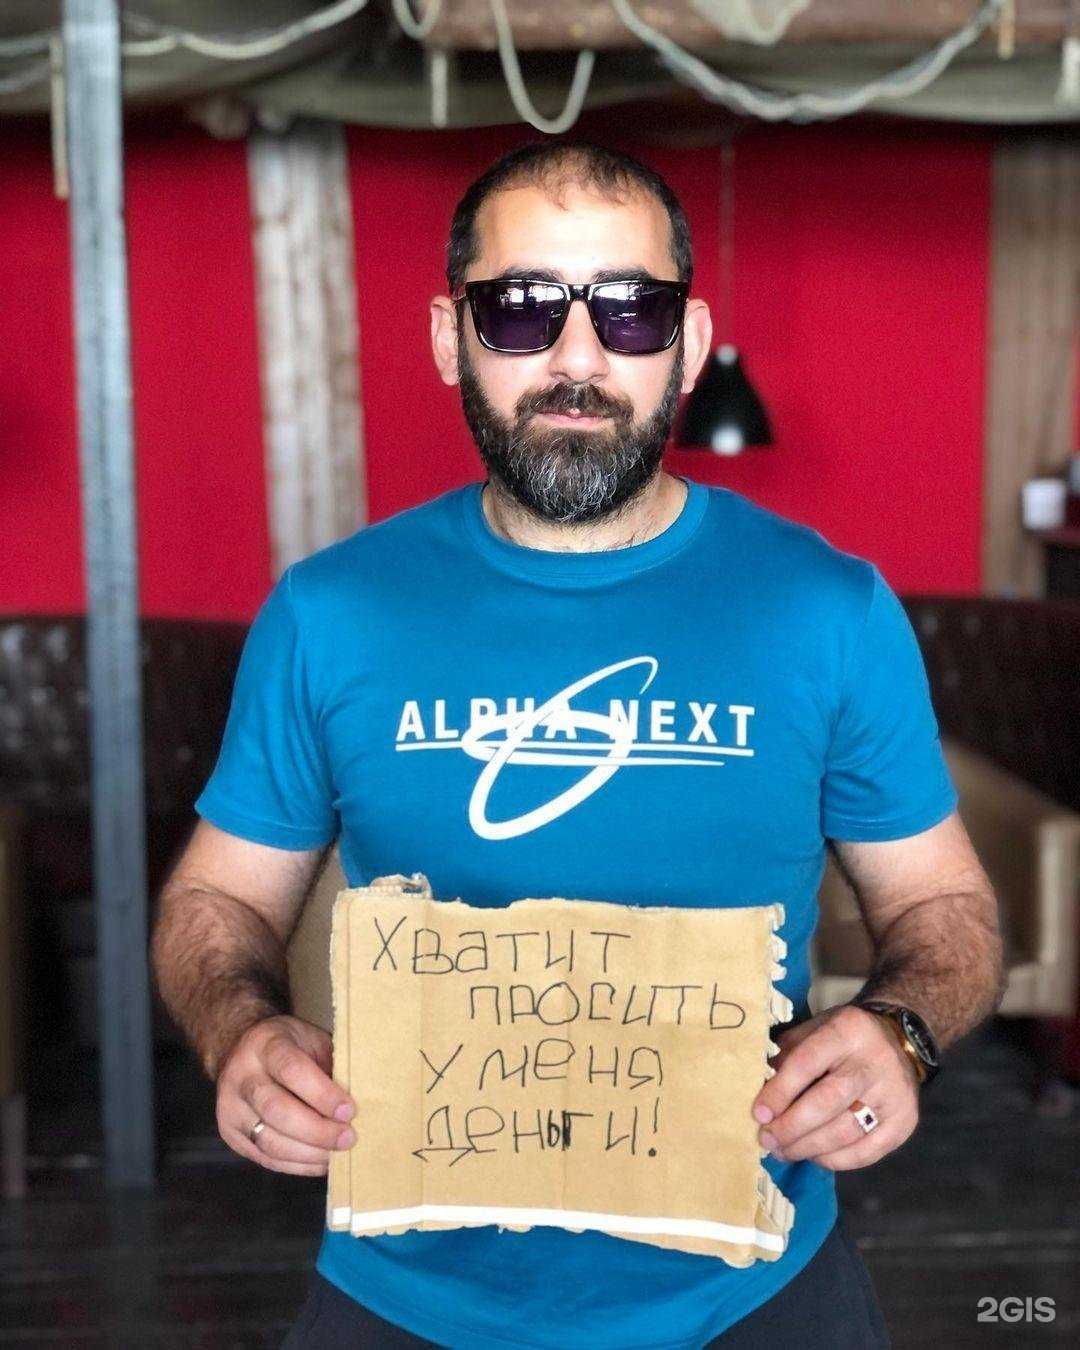 ALPHA NEXT
Хватит
просить
у меня
деньги!
2GIS